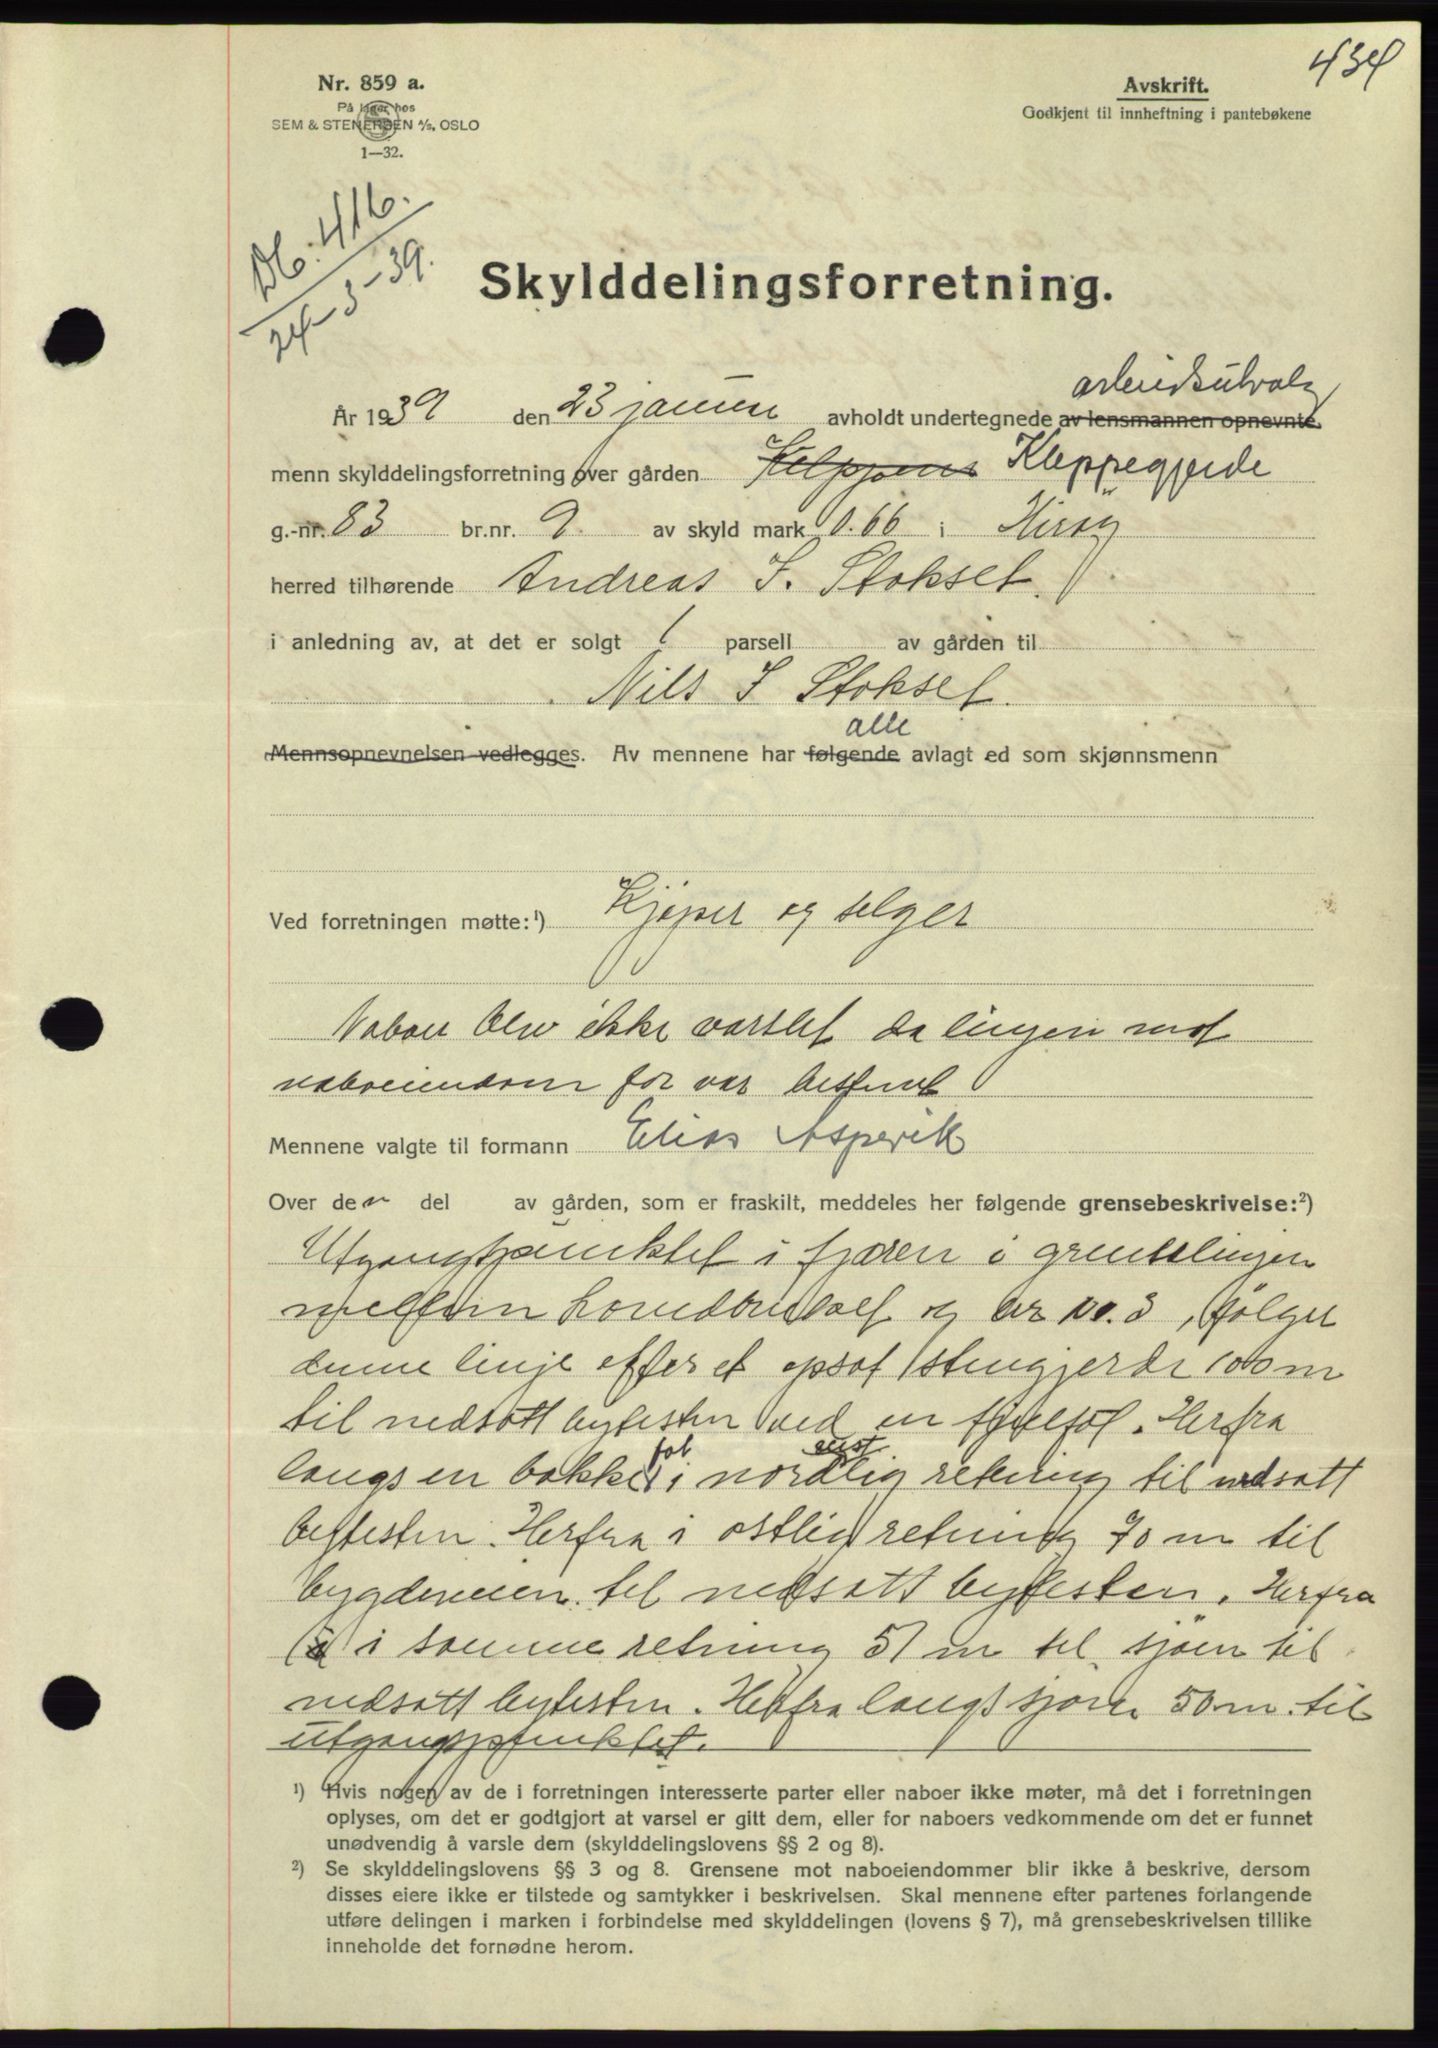 434
Nr. 859 a.
På lager hos
SEM & STENERSEN A/S, OSLO
1—32.
Avskrift.
Godkjent til innheftning i pantebøkene
Db: 416.
24-3-39.
Skylddelingsforretning.
arbeidsutvalg
År 1939 den 23 januar avholdt undertegnede av lensmannen opnevnte
menn skylddelingsforretning over gården Kleppegjerde
g.-nr. 83 br.nr. 9. av skyld mark 0.66 i Herøy
herred tilhørende Andreas J. Stokset
i anledning av, at det er solgt 1 parsell av gården til
Nils J Stokset.
alle
Mennsopnevnelsen vedlegges. Av mennene har følgende avlagt ed som skjønnsmenn
Ved forretningen møtte:¹) Kjøper og selger
Naboer blev ikke varslet da linjen mot
naboeiendom før var bestemt
Mennene valgte til formann Elias Aspevik
Over den del av gården, som er fraskilt, meddeles her følgende grensebeskrivelse:²)
Utgangspunktet i fjæren i grenselinjen
mellem hovedbruket og br no. 3, følger
denne linje efter et opsat stengjerde 100 m
til nedsatt bytesten ved en . Herfra
fot
langs en bakke i nordlig retning til nedsatt
bytesten. Herfra i østlig retning 70 m til
bygdeveien til nedsatt bytesten. Herfra
i samme retning 51 m til sjøen til
nedsatt bytesten. Herfra langs sjøen 50 m. til
utgangspunktet.
¹) Hvis nogen av de i forretningen interesserte parter eller naboer ikke møter, må det i forretningen
oplyses, om det er godtgjort at varsel er gitt dem, eller for naboers vedkommende om det er funnet
unødvendig å varsle dem (skylddelingslovens §§ 2 og 8).
²) Se skylddelingslovens §§ 3 og 8. Grensene mot naboeiendommer blir ikke å beskrive, dersom
disses eiere ikke er tilstede og samtykker i beskrivelsen. Skal mennene efter partenes forlangende
utføre delingen i marken i forbindelse med skylddelingen (lovens § 7), må grensebeskrivelsen tillike
inneholde det fornødne herom.